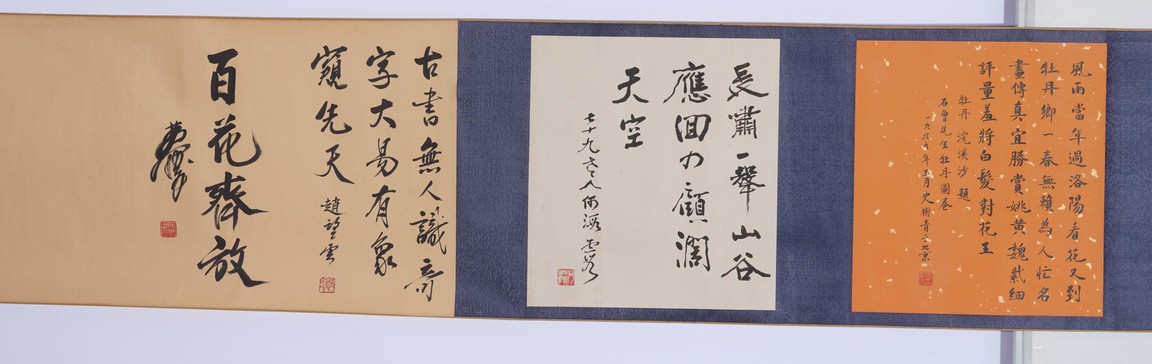 風雨當年過洛陽看花又到
牡丹鄉一春無賴為人忙名
畫傳真宜勝賞姚黃魏紫細
評量羞將白髮對花王
牡丹 浣溪沙 題
石魯先生牡丹圖卷
一九九年五月史樹青於北京
長嘯一聲山谷
應回力顧濶
天空
七十九老人何海霞
古書無人識奇
字大易有象
窺先天 趙望雲
百花齊放